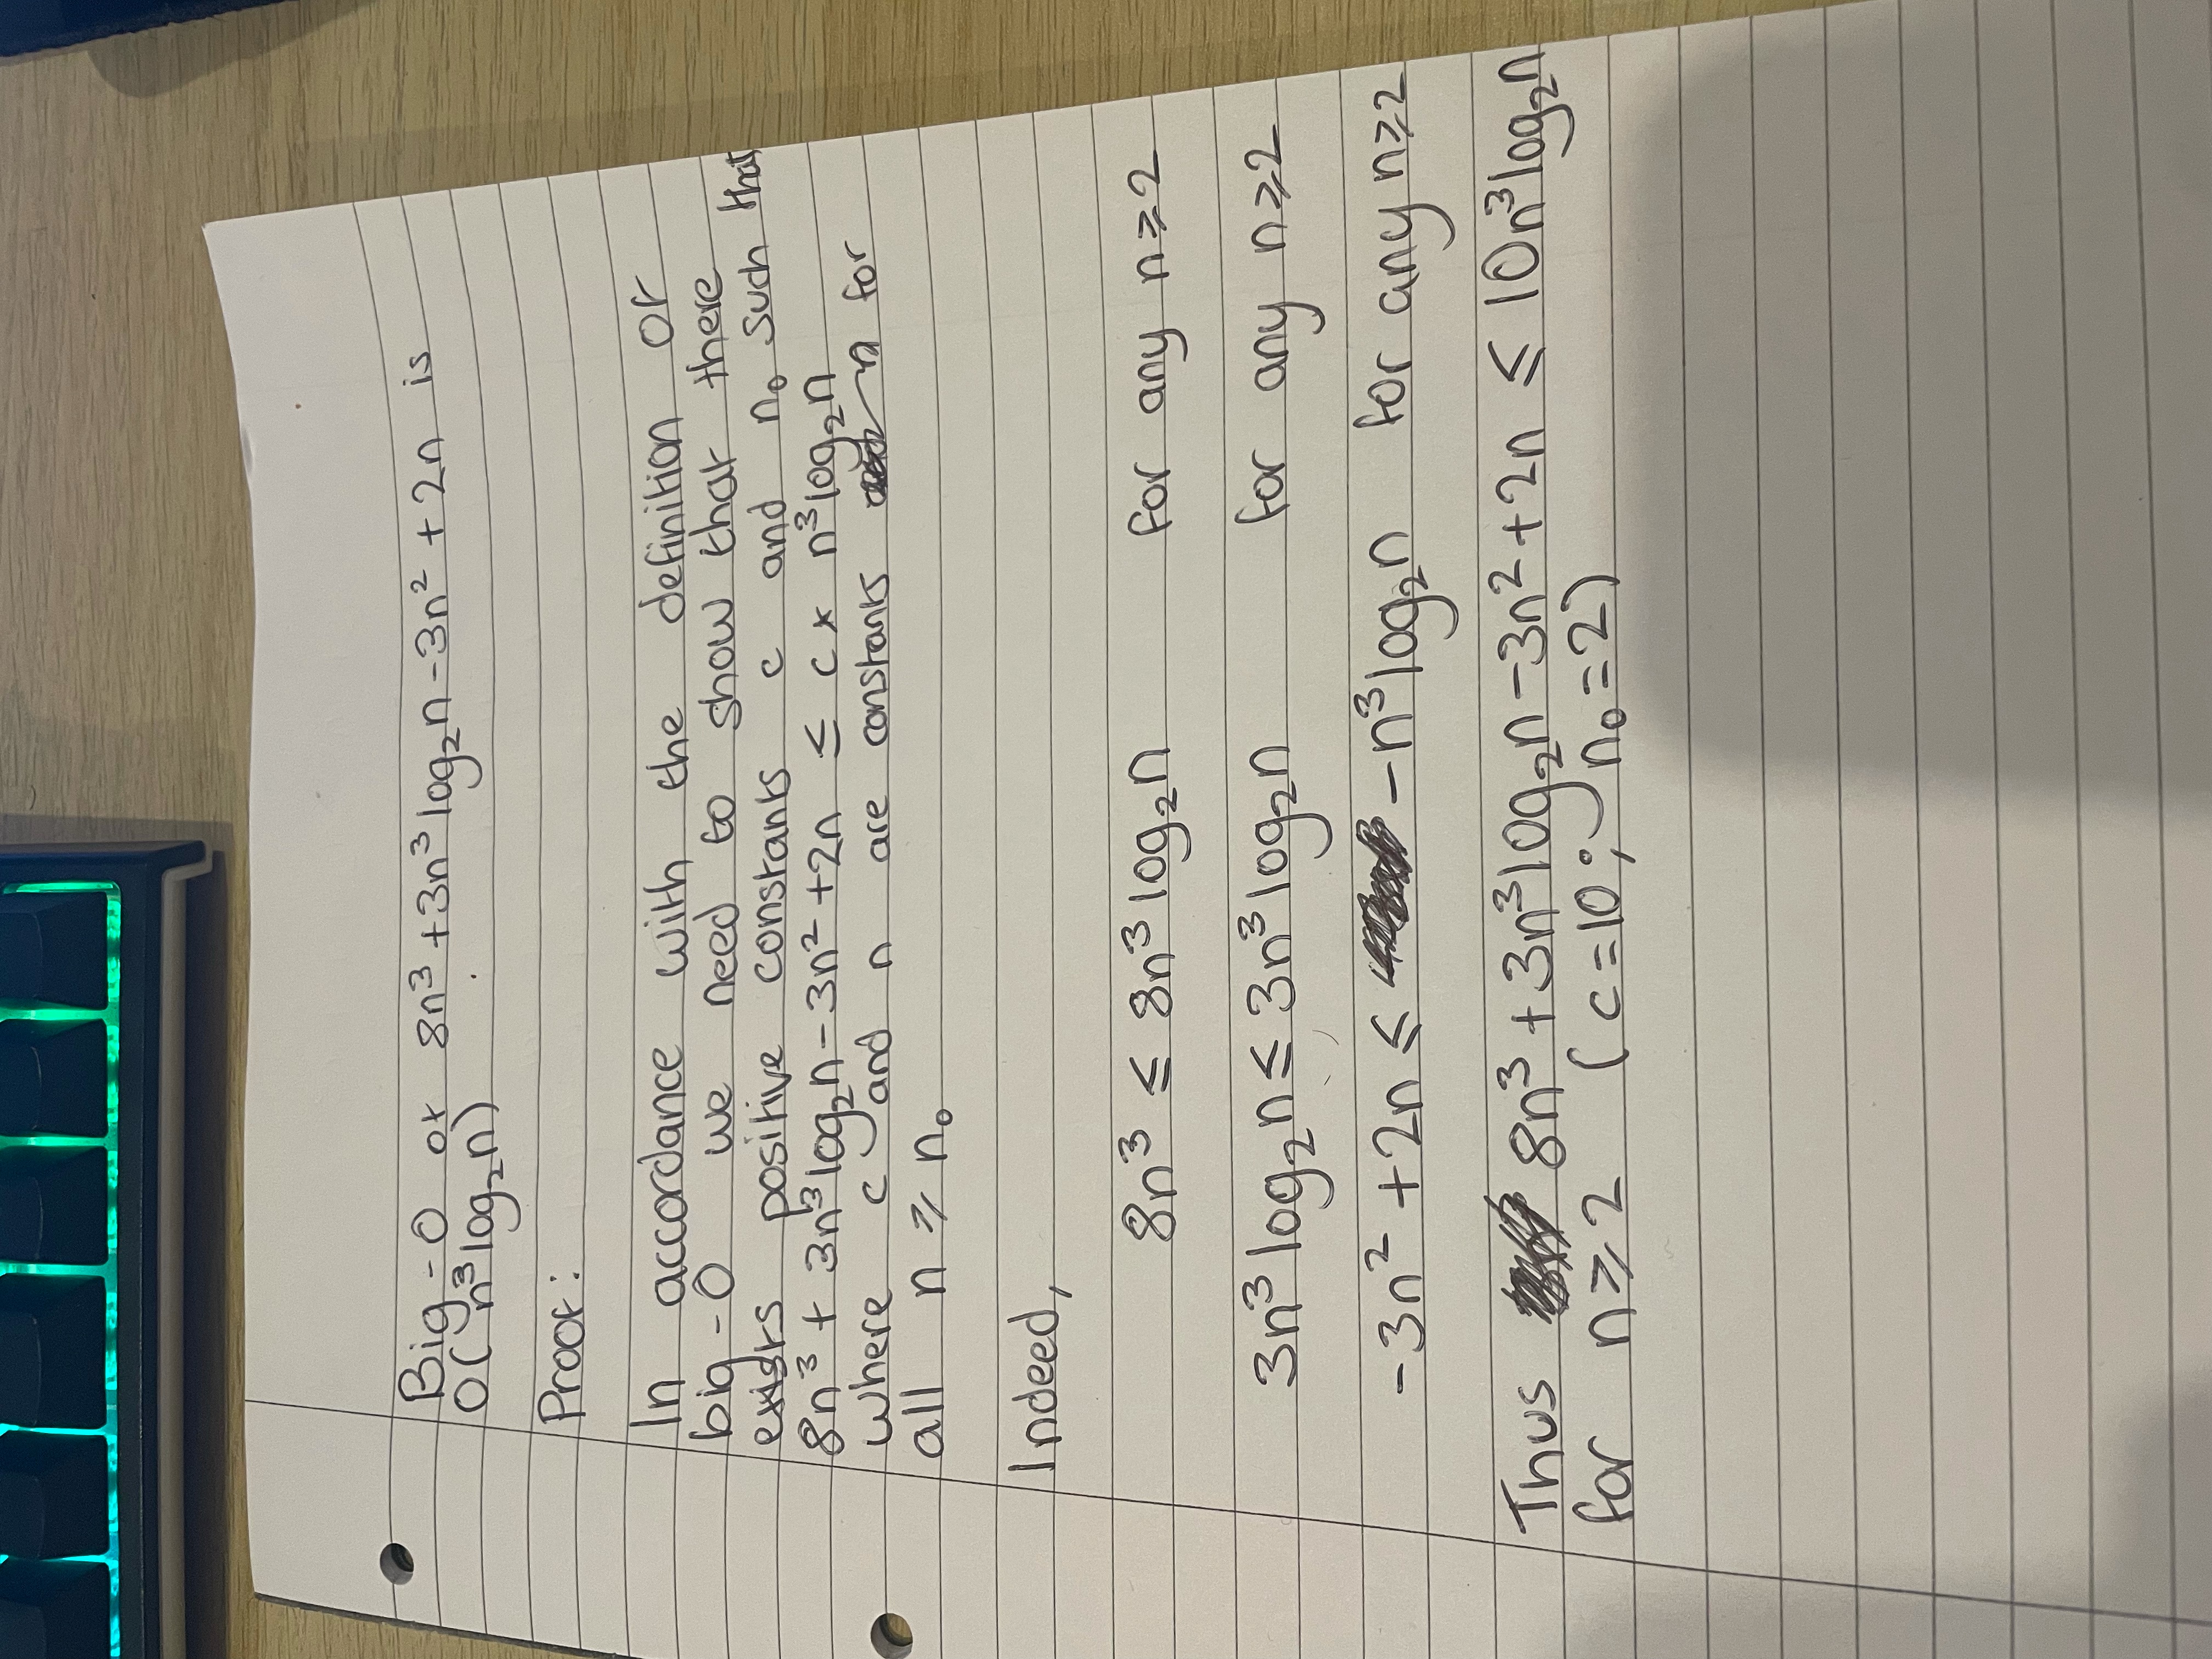 Big-O of 8n³ + 3n³ log₂n - 3n² + 2n is
O(n³ log₂n)
Proof:
In accordance with the definition of
big-O we need to show that there
exists positive constants c and n₀ such that
8n³ + 3n³ log₂n - 3n² + 2n ≤ c × n³ log₂n
where c and n are constants n for
all n ≥ n₀
Indeed,
8n³ ≤ 8n³ log₂n for any n ≥ 2
3n³ log₂n ≤ 3n³ log₂n for any n ≥ 2
-3n² + 2n ≤ -n³ log₂n for any n ≥ 2
Thus 8n³ + 3n³ log₂n - 3n² + 2n ≤ 10n³ log₂n
for n ≥ 2 (c = 10; n₀ = 2)